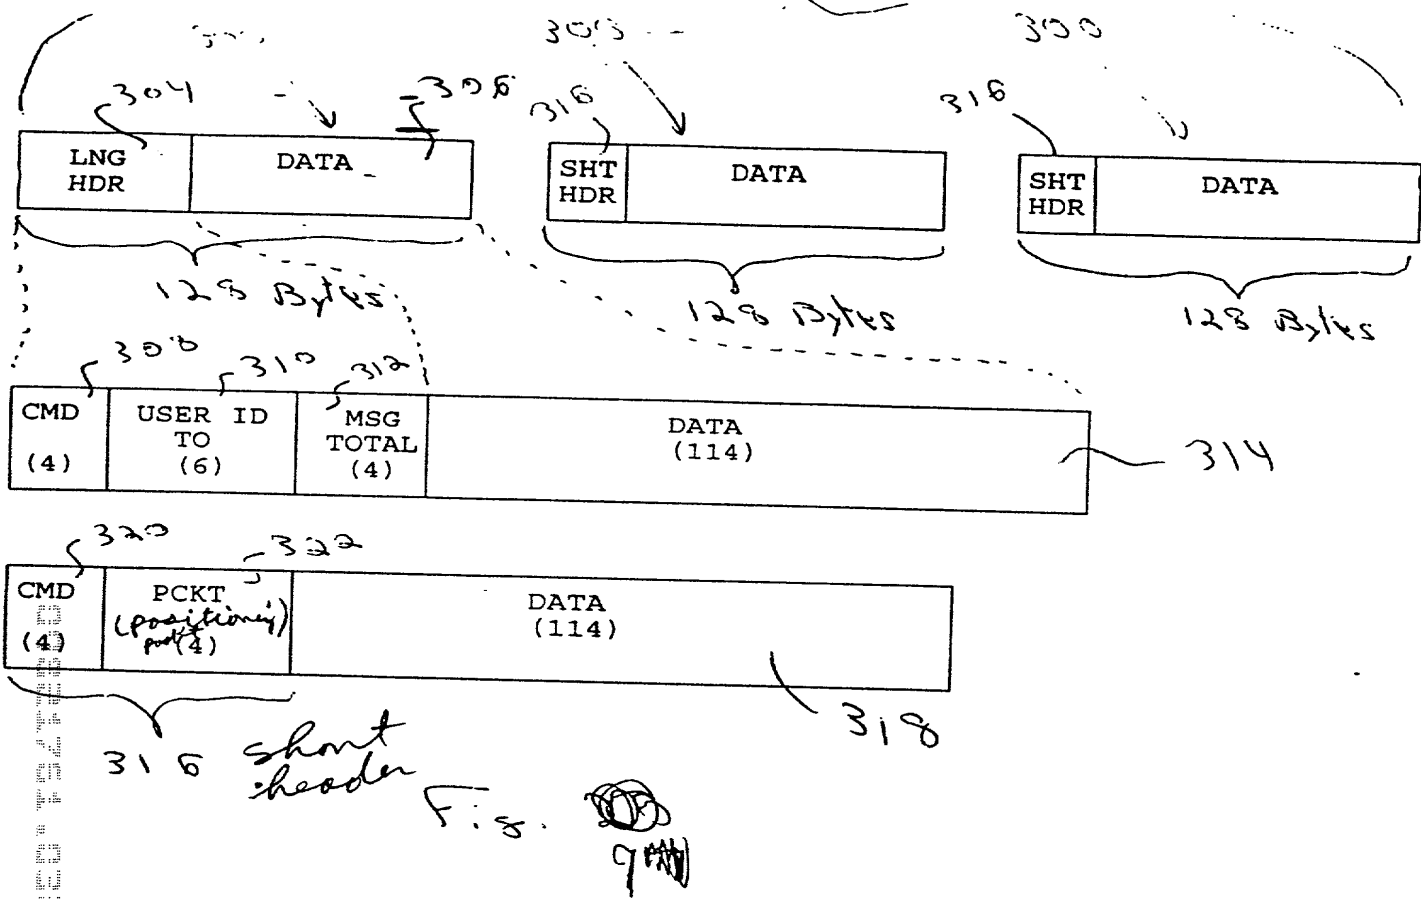 300
300
304
306
316
316
LNG
HDR
DATA
SHT
HDR
DATA
SHT
HDR
DATA
128 Bytes
128 Bytes
128 Bytes
310
312
CMD
(4)
USER ID
TO
(6)
MSG
TOTAL
(4)
DATA
(114)
314
320
322
CMD
(4)
PCKT
(positioning)
(4)
DATA
(114)
318
316 short
header
Fig.
9